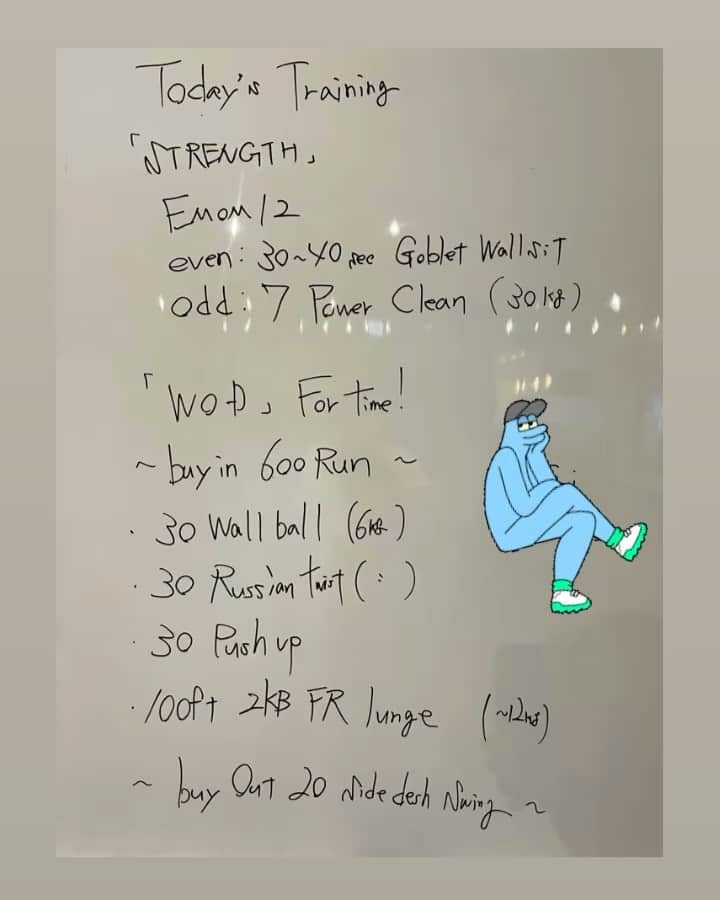 Today's Training
「STRENGTH」
EMOM 12
even: 30~40 sec Goblet Wall sit
odd: 7 Power Clean (30kg)
「WOD」 For time!
~ buy in 600 Run ~
· 30 Wall ball (6kg)
· 30 Russian twist (:)
· 30 Push up
· 100ft 2KB FR lunge (~12kg)
~ buy Out 20 Side desh Swing ~